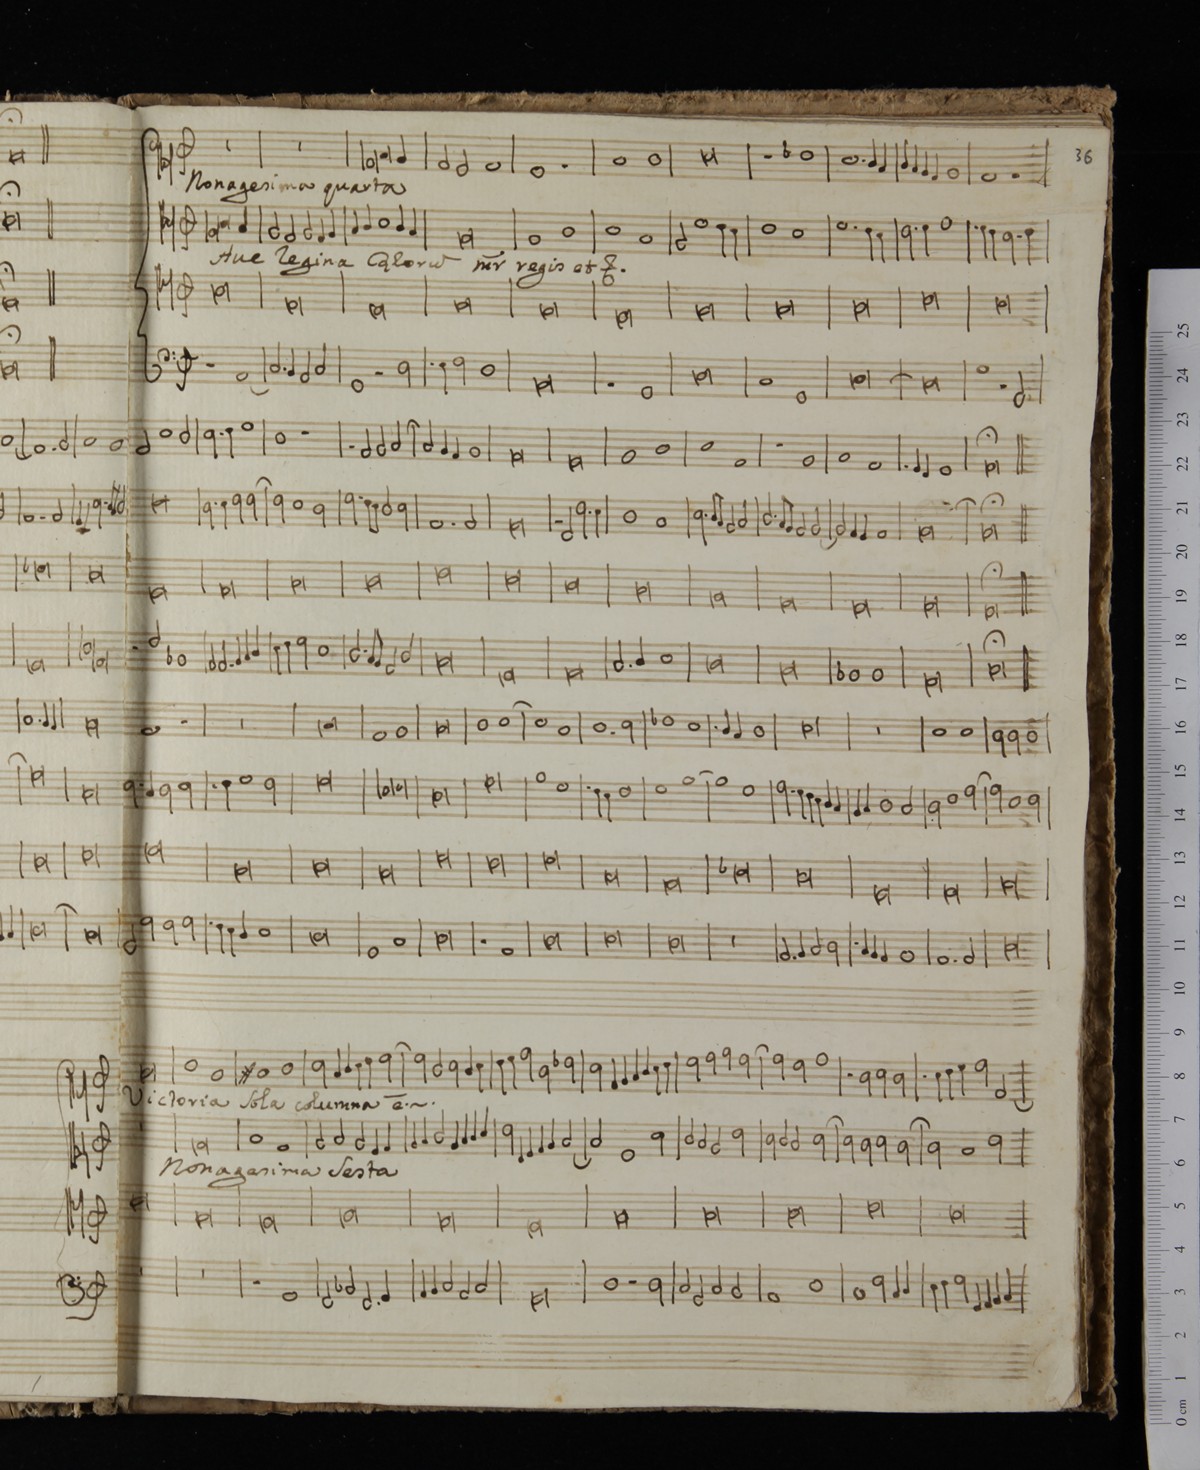 36
Nonagesima quarta
Aue Regina
regis et
Victoria sola columna
Nonagesima sesta
25
24
23
22
21
20
19
18
17
16
15
14
13
12
11
10
9
8
7
6
5
4
3
2
1
0 cm